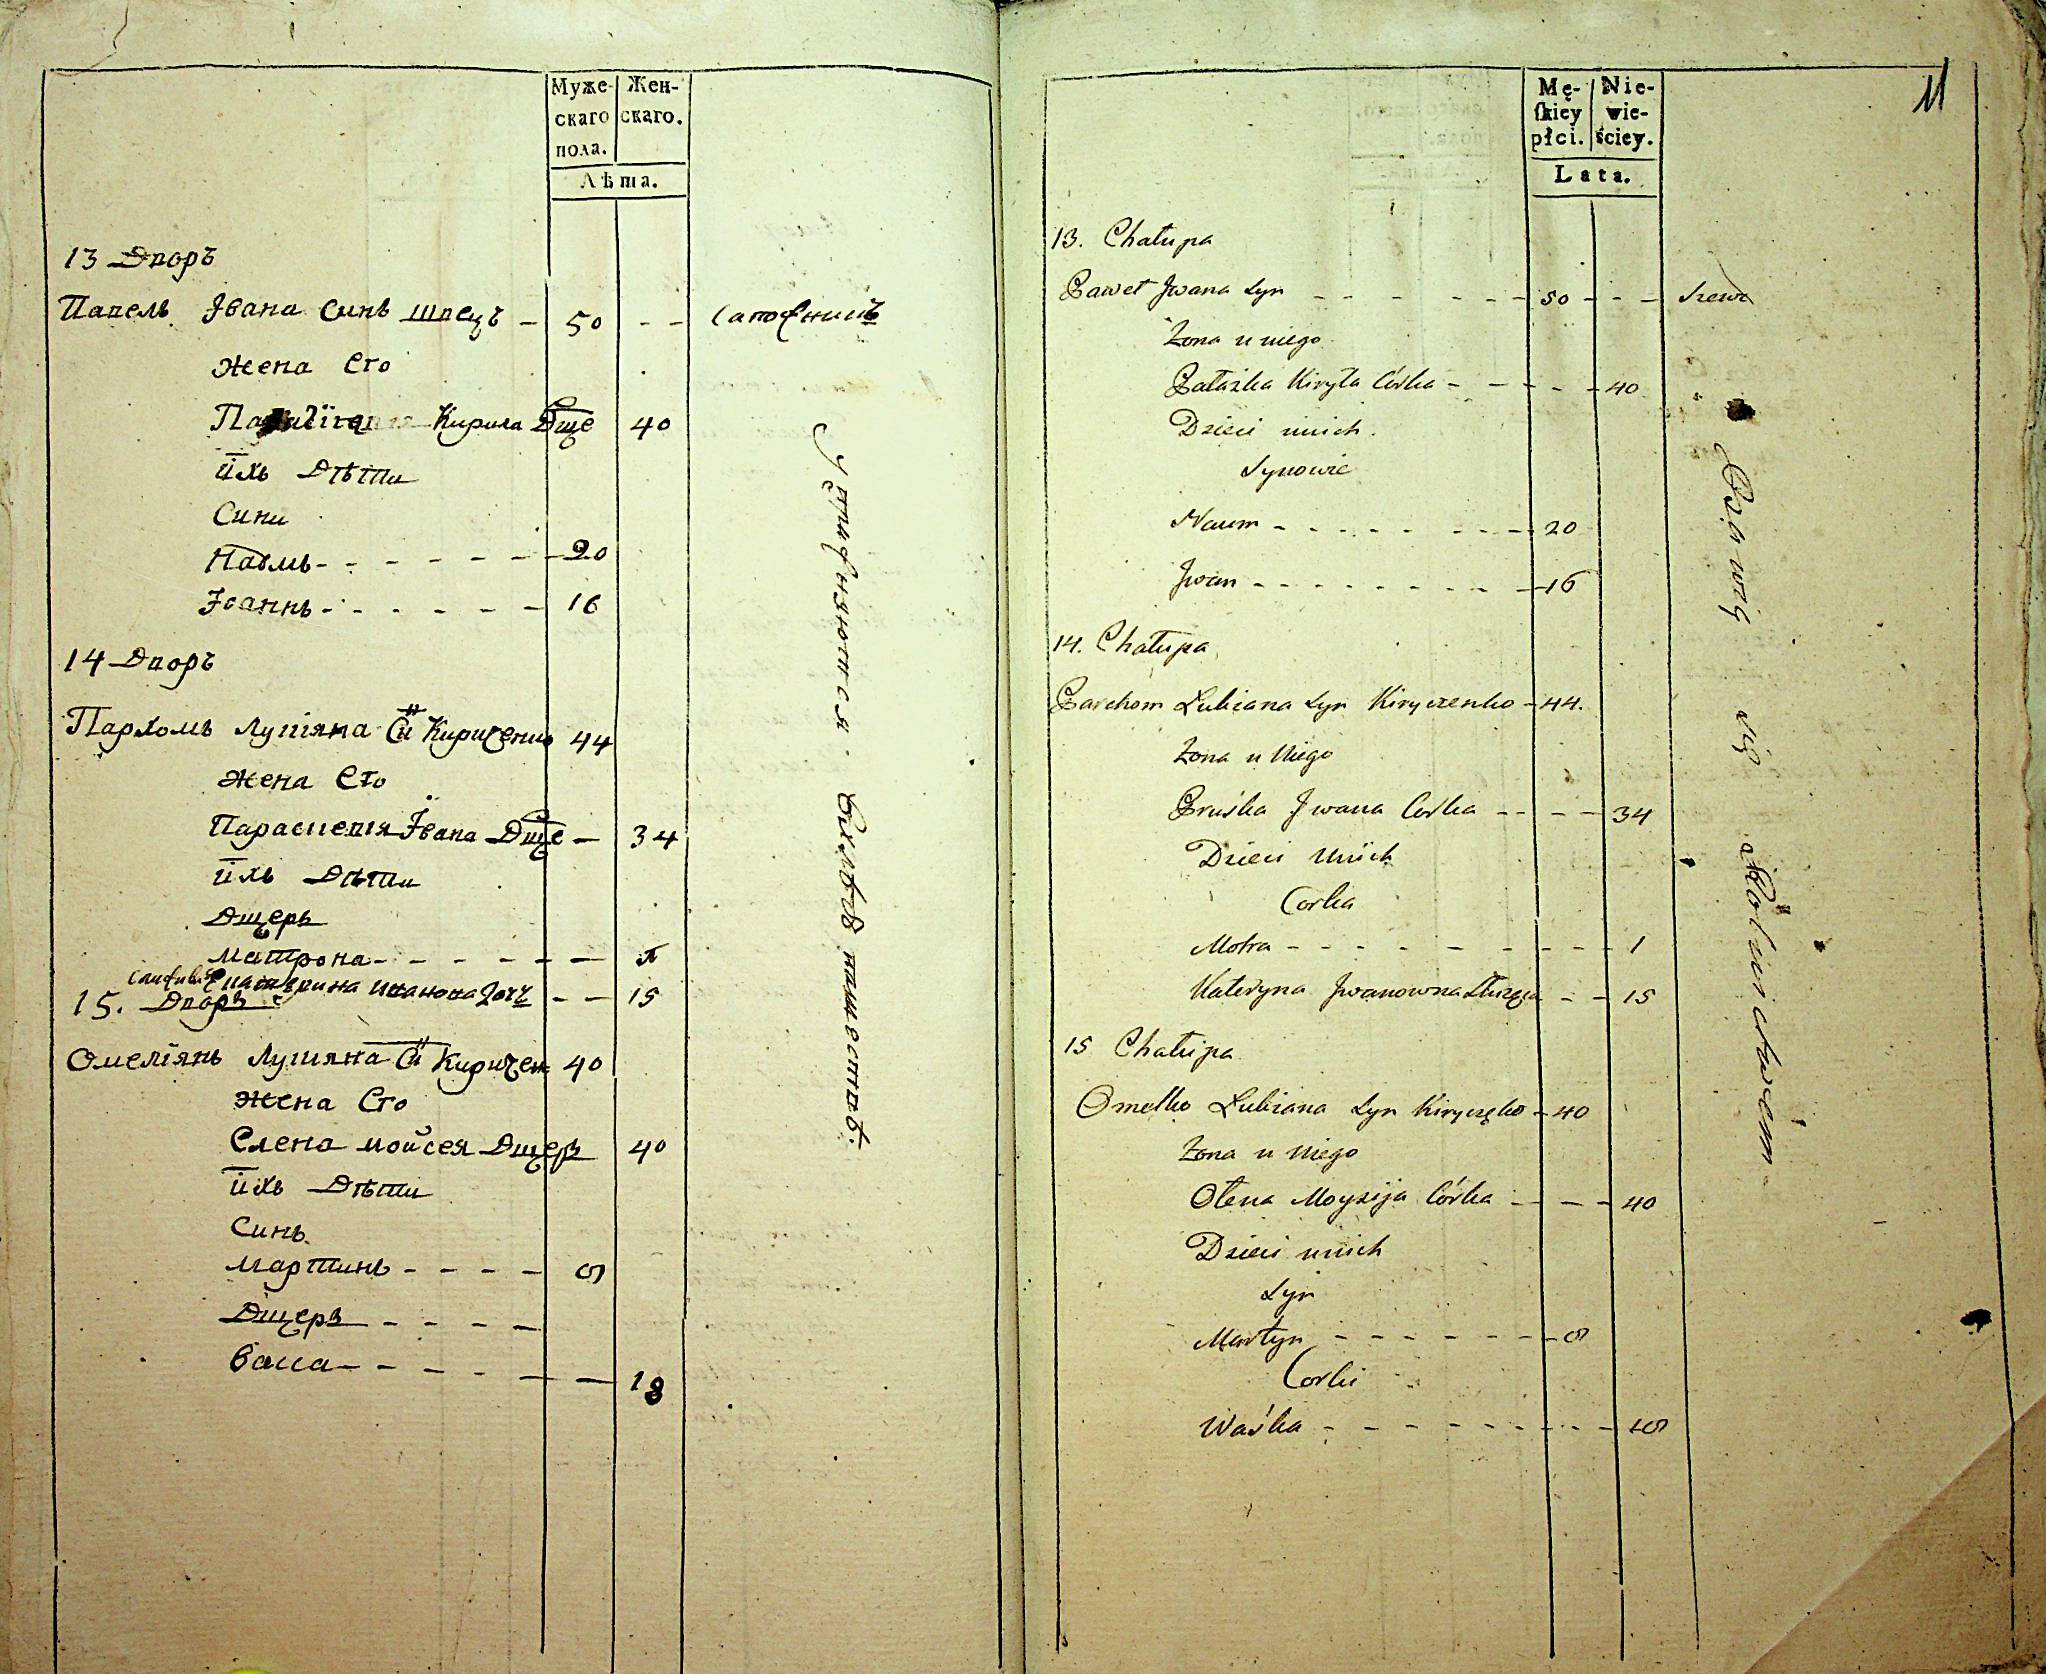 Муже- Жен-
скаго скаго.
пола.
Лѣта.
13 Дворъ
Павелъ Івана синъ швецъ - 50 - - сапожникъ
жена Его
Кирила Дще 40
ихъ Дѣти
Сини
Наумъ - - - - - - 20
Іоаннъ - - - - - - 16
14 Дворъ
Пархомъ Лукіяна Си Кириченко 44
жена Его
Параскевія Івана Дще - 34
ихъ Дѣти
Дщерь
Матрона - - - - - - - 1
Екатерина Иванова - - 15
15. Дворъ
Омеліянъ Лукіяна Си Кириченк 40
жена Его
Елена Мойсея Дщерь 40
ихъ Дѣти
Синъ
Мартинъ - - - - 9
Дщерь - - - -
Васса - - - - - - 18
упражняются въ хлѣбопашествѣ.
11
Mę- Nie-
ſkiey wie-
płci. ściey.
Lata.
13. Chałupa
Paweł Jwana Syn - - - - - - 50 - - - Szewc
Żona u niego
Pałażka Kiryła Córka - - - - - 40
Dzieci unich
Synowie
Naum - - - - - - - - 20
Jwan - - - - - - - - 16
14. Chałupa
Parchom Lukiana Syn Kiryczenko - 44.
Żona u Niego
Pruśka Jwana Corka - - - - 34
Dzieci Unich
Corka
Motra - - - - - - - - - 1
Kateryna Jwanowna Służąca - - 15
15 Chałupa
Omelko Lukiana Syn Kiryczęko - 40
Żona u Niego
Ołena Moysija Córka - - - 40
Dzieci unich
Syn
Martyn - - - - - - - 9
Corki
Waśka - - - - - - - - - 18
Bawią się Rolnictwem